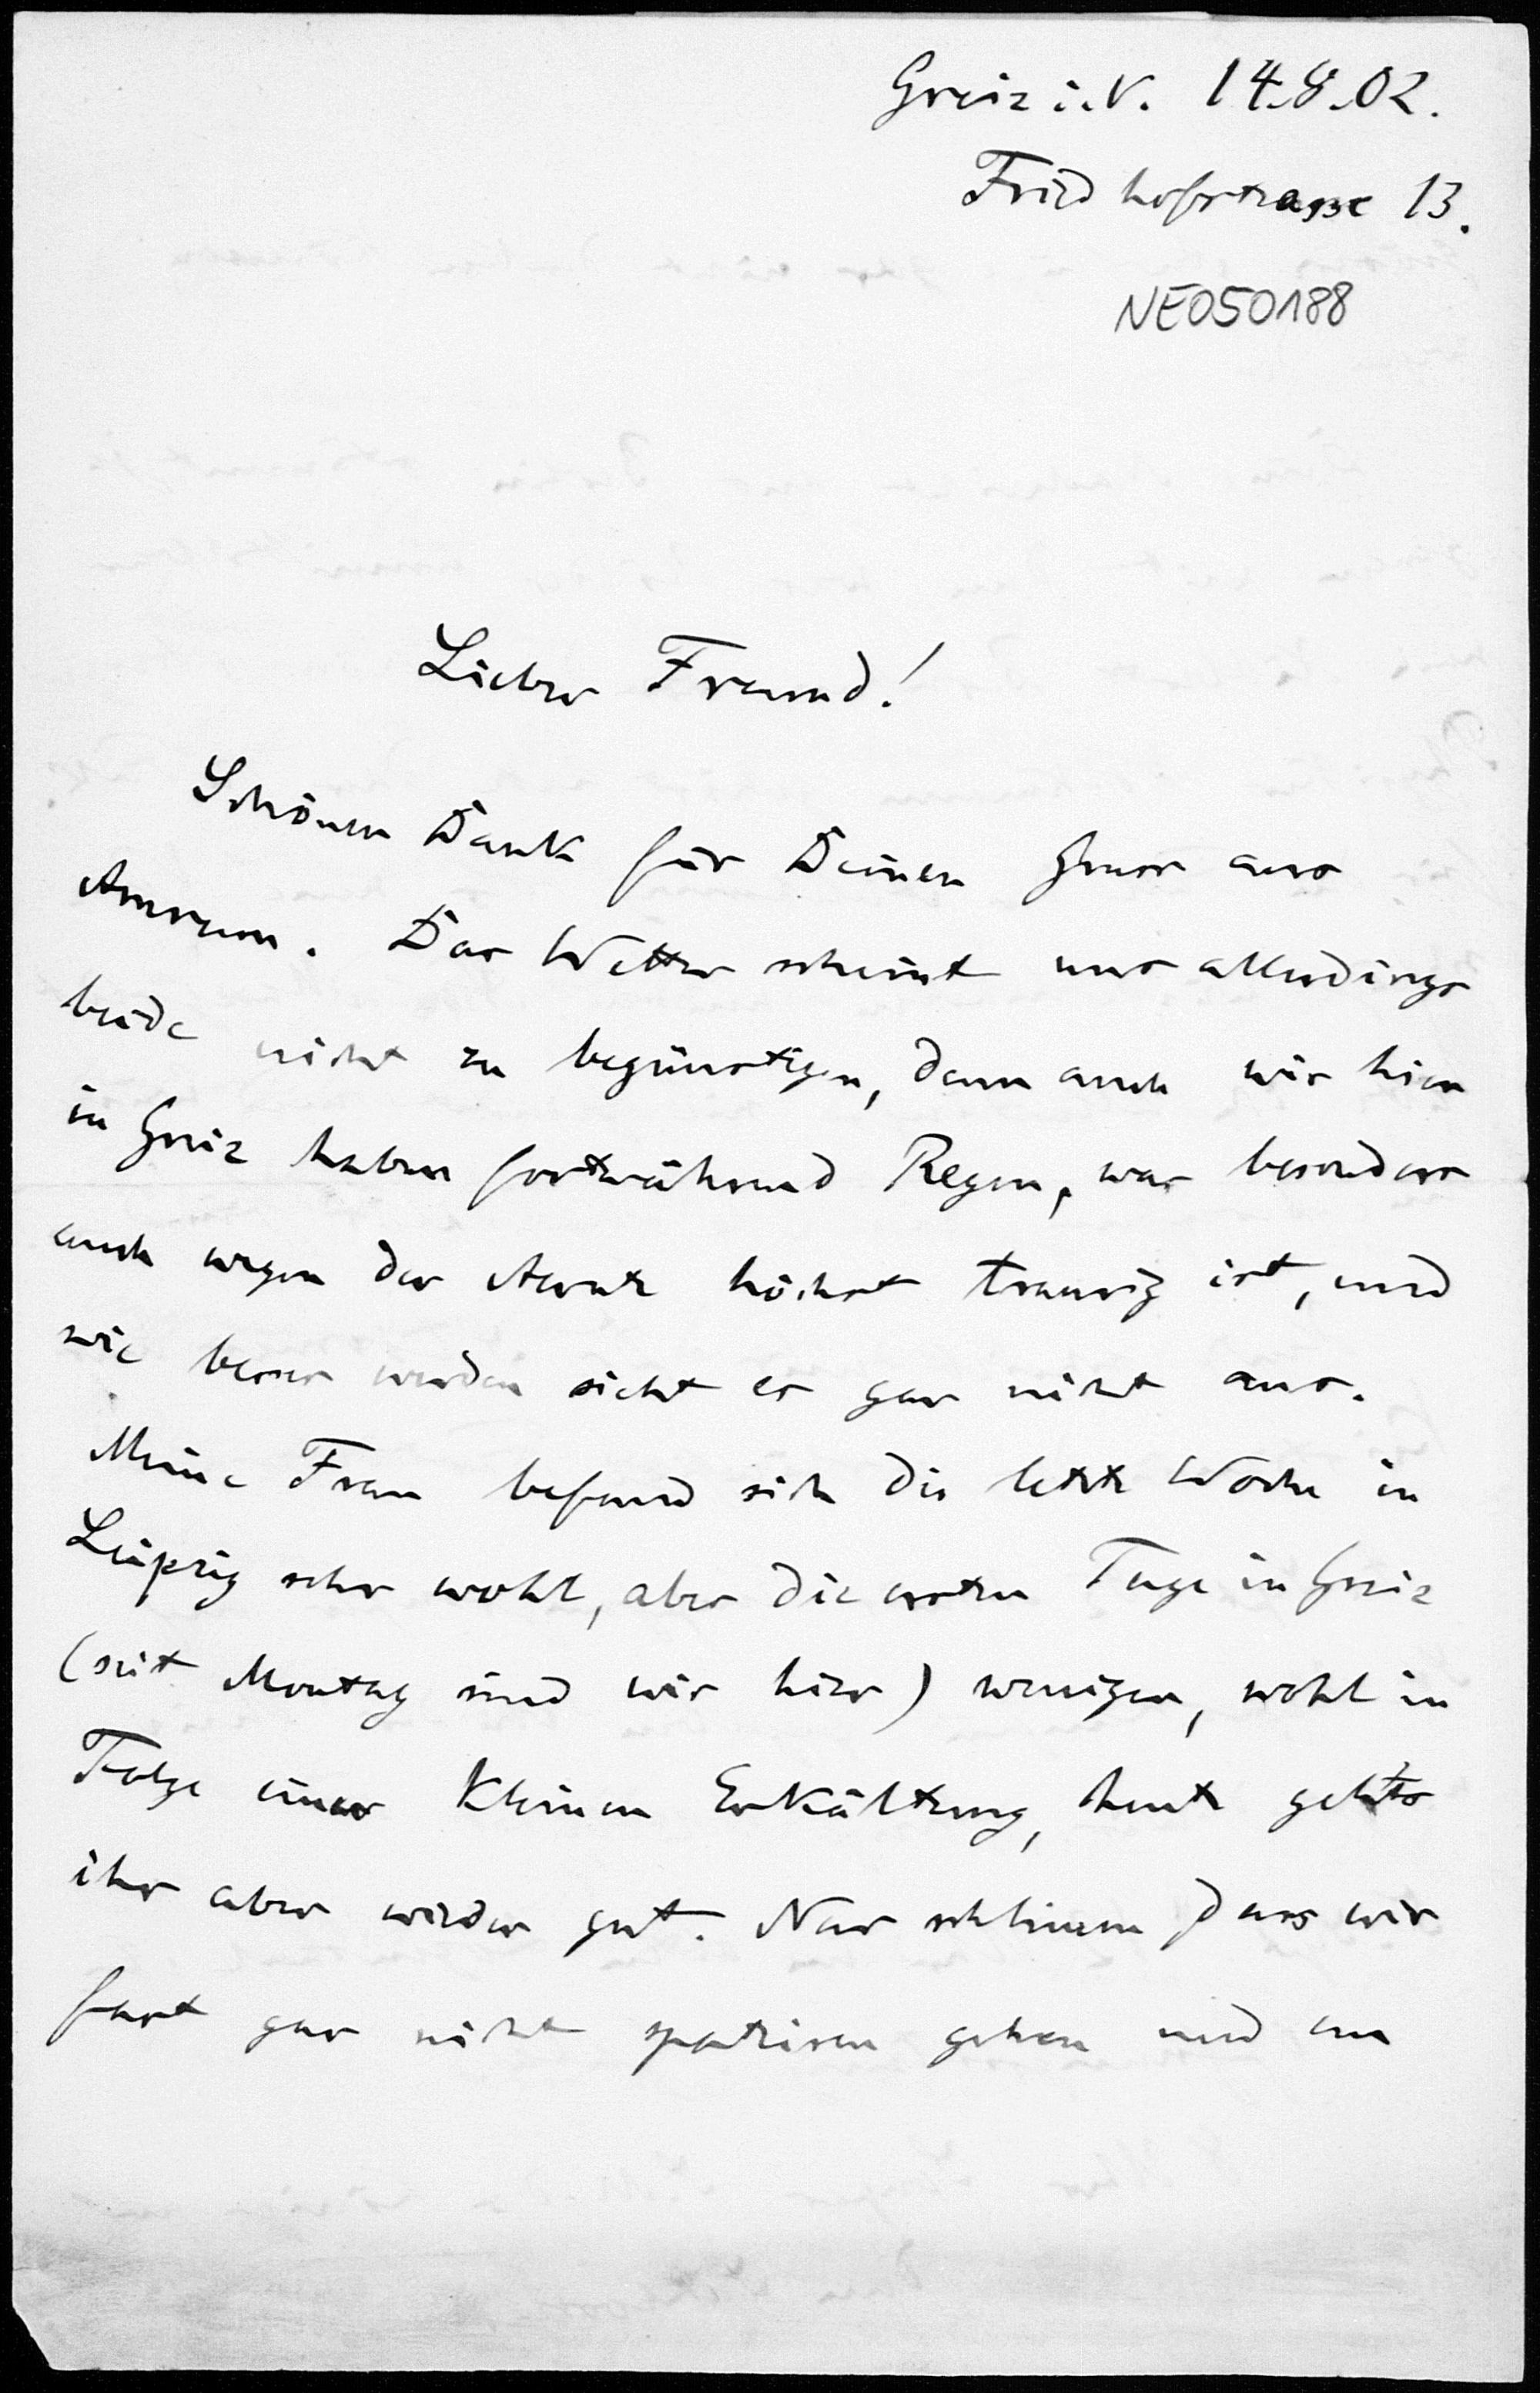 Greiz i. V. 14.8.02.
Friedhofstrasse 13.
NE050188
Lieber Freund!
Schönen Dank für Deinen Gruss aus
Amrum. Das Wetter scheint uns allerdings
beide nicht zu begünstigen, denn auch wir hier
in Greiz haben fortwährend Regen, was besonders
auch wegen der Aernte höchst traurig ist, und
wie besser werden sieht es gar nicht aus.
Meine Frau befand sich die letzte Woche in
Leipzig sehr wohl, aber die ersten Tage in Greiz
(seit Montag sind wir hier) weniger, wohl in
Folge einer kleinen Erkältung, heute geht's
ihr aber wieder gut. Nur schlimm dass wir
fast gar nicht spatziren gehen und am